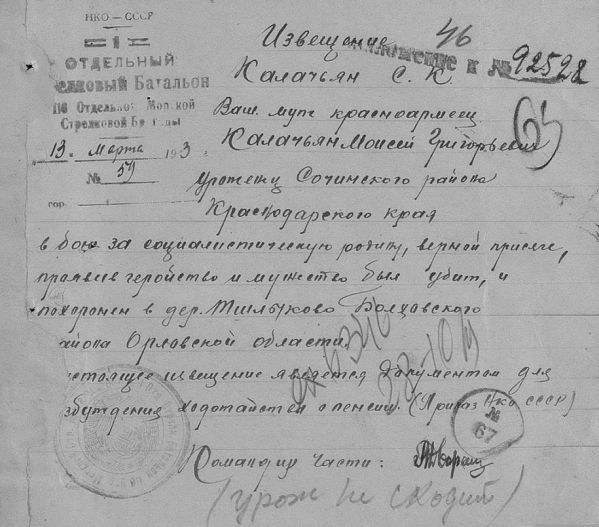 НКО — СССР
1
ОТДЕЛЬНЫЙ
елковый Батальон
116 Отдельной Морской
Стрелковой Бригады
„13„ марта 1943
№ 59
гор.
Извещение 46
к № 92528
Калачьян С. К.
65
Ваш муж красноармеец
Калачьян Моисей Григорьевич
уроженец Сочинского района
Краснодарского края
в бою за социалистическую родину, верной присяге,
проявив геройство и мужество был убит, и
похоронен в дер. Болховского
района Орловской области
настоящее извещение является документом для
возбуждения ходотайств о пенсии. (Приказ НКО СССР)
№
67
Командир части:
(урож не сходит)